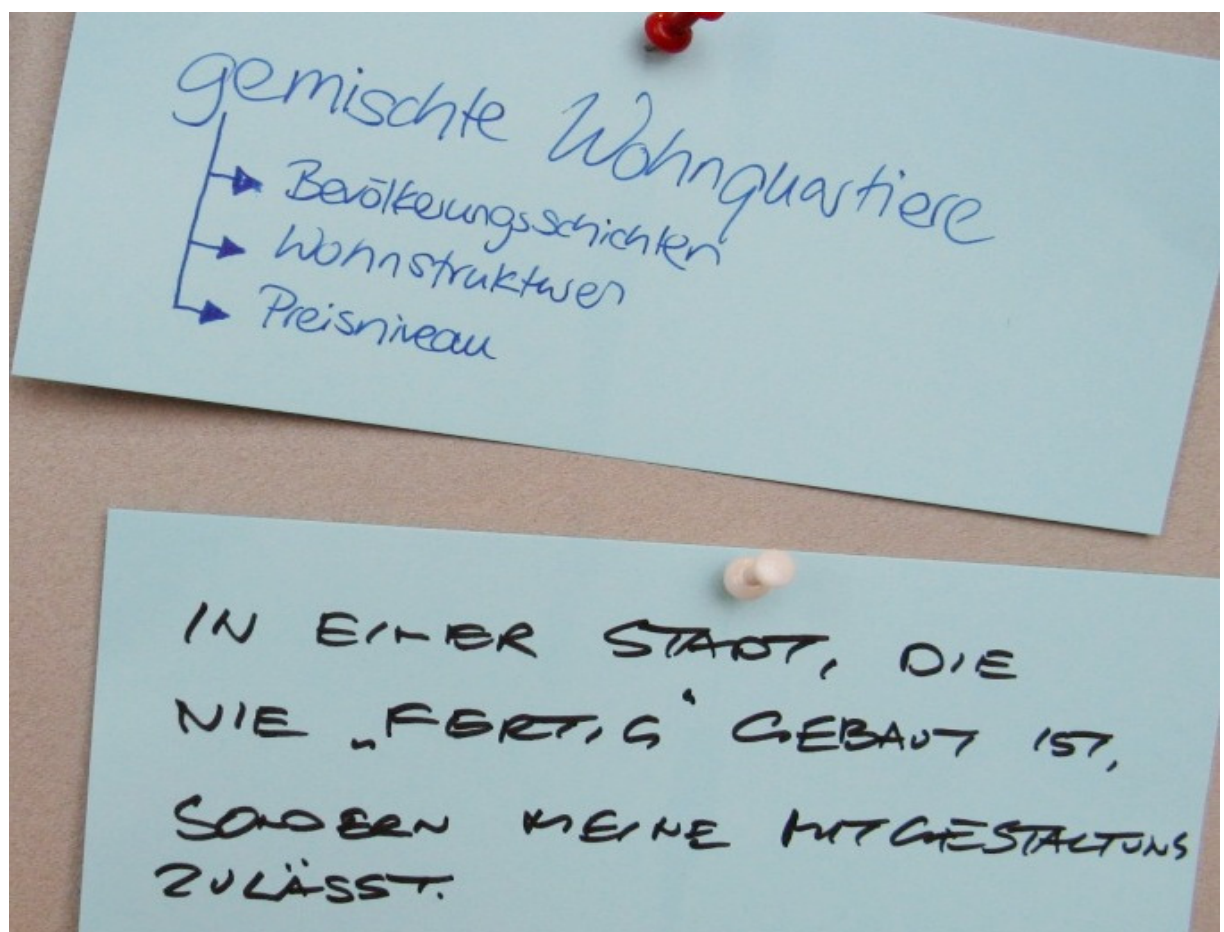 gemischte Wohnquartiere
Bevölkerungsschichten
Wohnstrukturen
Preisniveau
IN EINER STADT, DIE
NIE „FERTIG“ GEBAUT IST,
SONDERN MEINE MITGESTALTUNG
ZULÄSST.